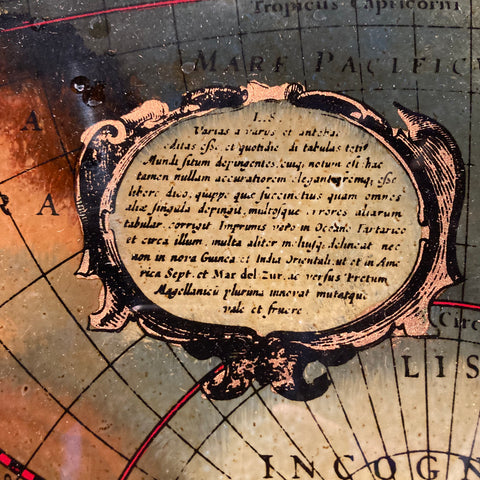 Tropicus Capricorni
MARE PACIFIC
L.S.
Varias a varus et antehac
editas esse, et quotidie di tabulas totiꝰ
Mundi situm depingentes, cuiq, notum est: hac
tamen nullam accuratiorem elegantioremq; esse
lebere dico, quippe que succinctius quam omnes
aliæ singula depingit, multosque errores aliarum
tabular corrigit Imprimis vero in Oceano Tartarico
et circa illum, multa aliter meliusq, delineat nec
non in nova Guinea et India Orientali, ut et in Ame
rica Sept. et Mar del Zur, ac versus Fretum
Magellanicū plurima innovat mutatque
vale et fruere
A
RA
Circ
LIS
INCOGN